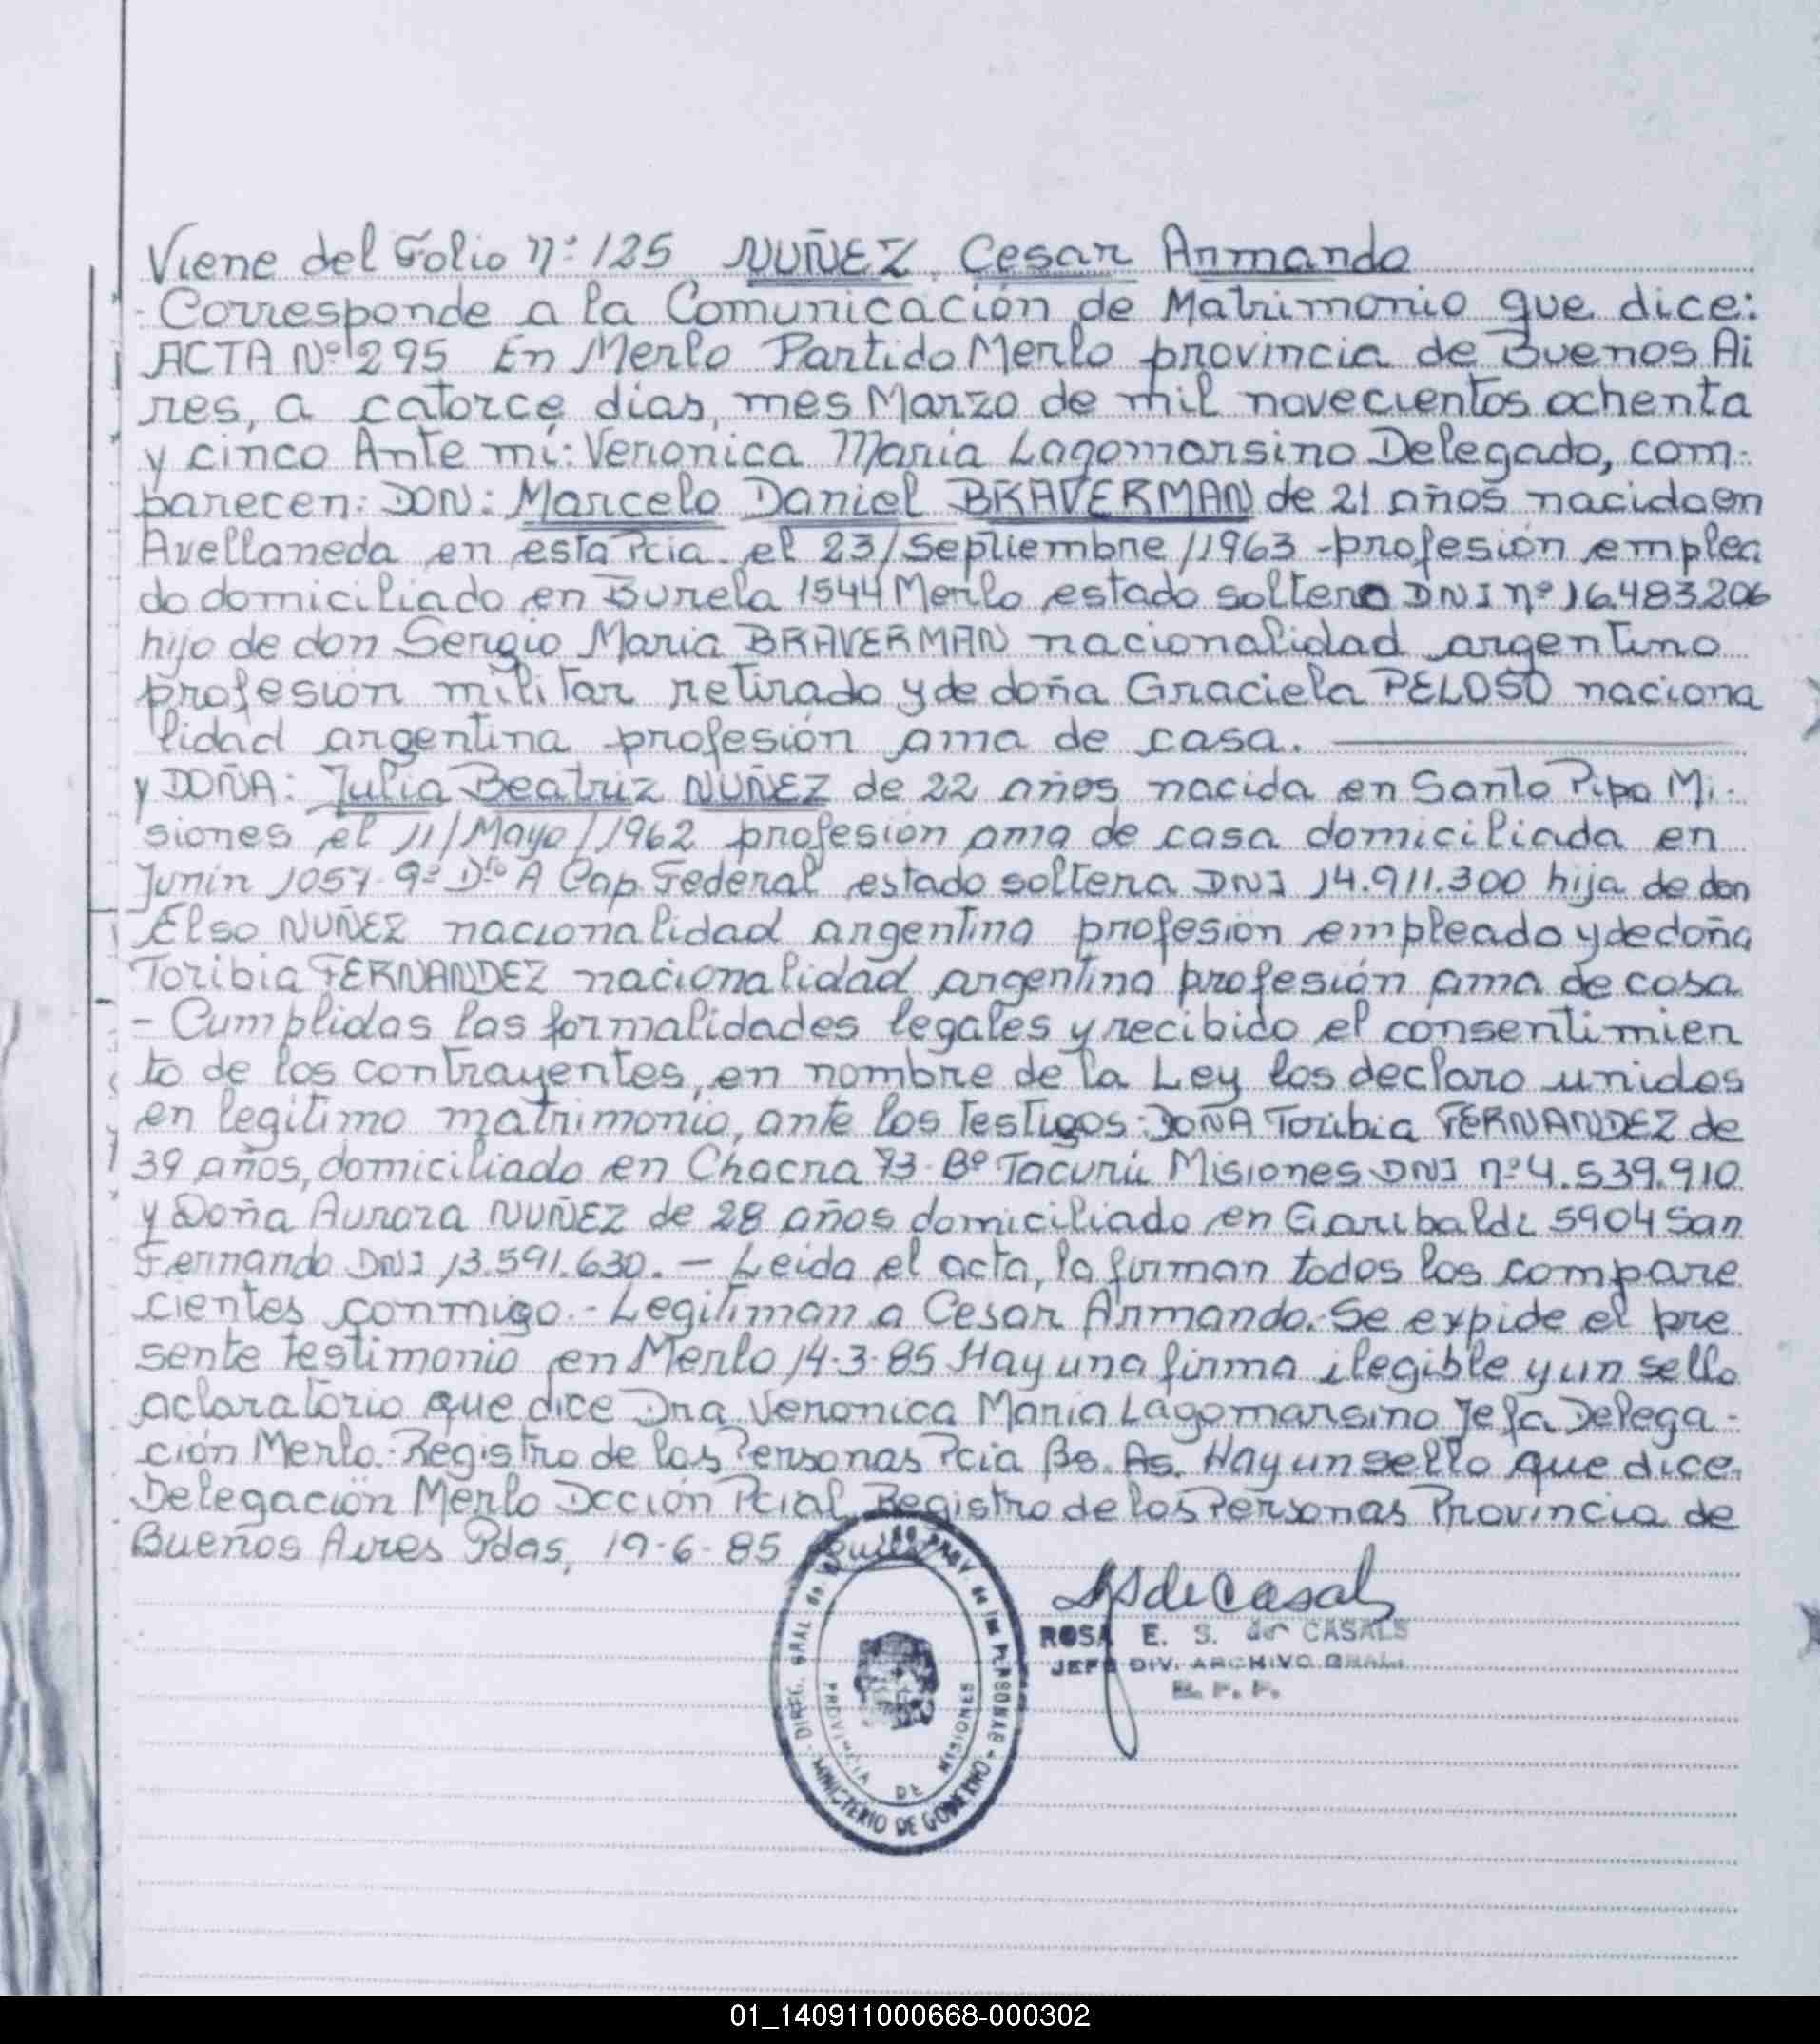 Viene del Folio Nº 125 NUÑEZ, Cesar Armando
- Corresponde a la Comunicación de Matrimonio que dice:
ACTA Nº 295 En Merlo Partido Merlo provincia de Buenos Ai
res, a catorce dias, mes Marzo de mil novecientos ochenta
y cinco Ante mí: Veronica Maria Lagomarsino Delegado, com-
parecen: DON: Marcelo Daniel BRAVERMAN de 21 años nacido en
Avellaneda en esta Pcia. el 23/Septiembre/1963 - profesión emplea
do domiciliado en Burela 1544 Merlo estado soltero DNI nº 16.483.206
hijo de don Sergio Maria BRAVERMAN nacionalidad argentino
profesión militar retirado y de doña Graciela PELOSO naciona
lidad argentina profesión ama de casa.
y DOÑA: Julia Beatriz NUÑEZ de 22 años nacida en Santo Pipo Mi-
siones el 11/Mayo/1962 profesión ama de casa domiciliada en
Junin 1057-9º Dto A Cap. Federal estado soltera DNI 14.911.300 hija de don
Elso NUÑEZ nacionalidad argentino profesión empleado y de doña
Toribia FERNANDEZ nacionalidad argentina profesión ama de casa
- Cumplidas las formalidades legales y recibido el consentimien
to de los contrayentes, en nombre de la Ley los declaro unidos
en legitimo matrimonio, ante los testigos: DOÑA Toribia FERNANDEZ de
39 años, domiciliado en Chacra 73-Bº Tacurú Misiones DNI nº 4.539.910
y Doña Aurora NUÑEZ de 28 años domiciliado en Garibaldi 5904 San
Fernando DNI 13.591.630. - Leida el acta, la firman todos los compare
cientes conmigo.- Legitiman a Cesar Armando. Se expide el pre
sente testimonio en Merlo 14-3-85 Hay una firma ilegible y un sello
aclaratorio que dice Dra. Veronica Maria Lagomarsino Jefa Delega-
ción Merlo. Registro de las Personas Pcia Bs. As. Hay un sello que dice.
Delegación Merlo Dcción Pcial. Registro de las Personas Provincia de
Buenos Aires Pdas, 19-6-85
DIREC. GRAL de las PERSONAS
MINISTERIO DE GOBIERNO
PROVINCIA DE MISIONES
ROSA E. S. de CASALS
JEFE DIV. ARCHIVO GRAL.
R. P. P.
01_140911000668-000302